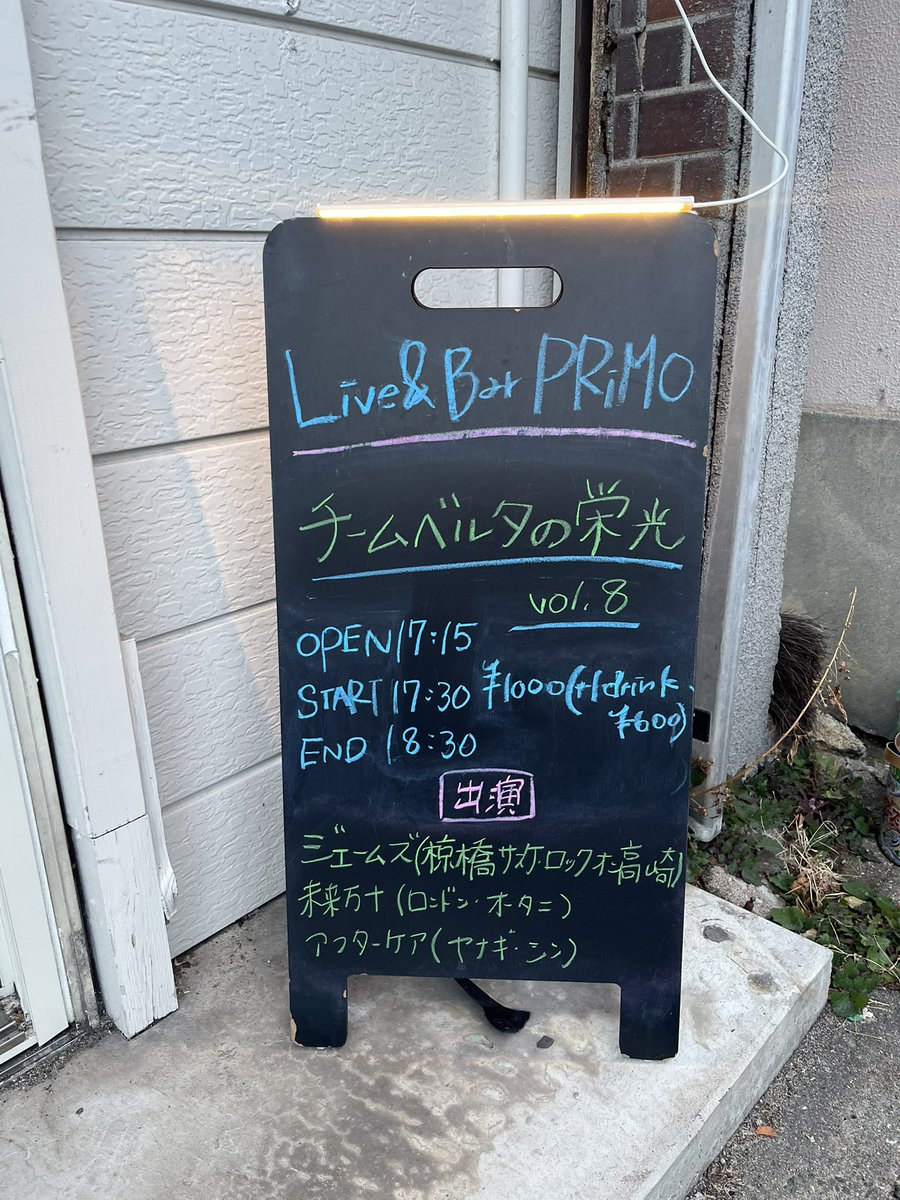 Live&Bar PRiMO
チームベルタの栄光
vol.8
OPEN 17:15
START 17:30 ¥1000(+1drink ¥600)
END 18:30
出演
ジェームズ(椋橋サスケ・ロックオン高崎)
未来万十(ロンドン・オータニ)
アフターケア(ヤナギ・シン)